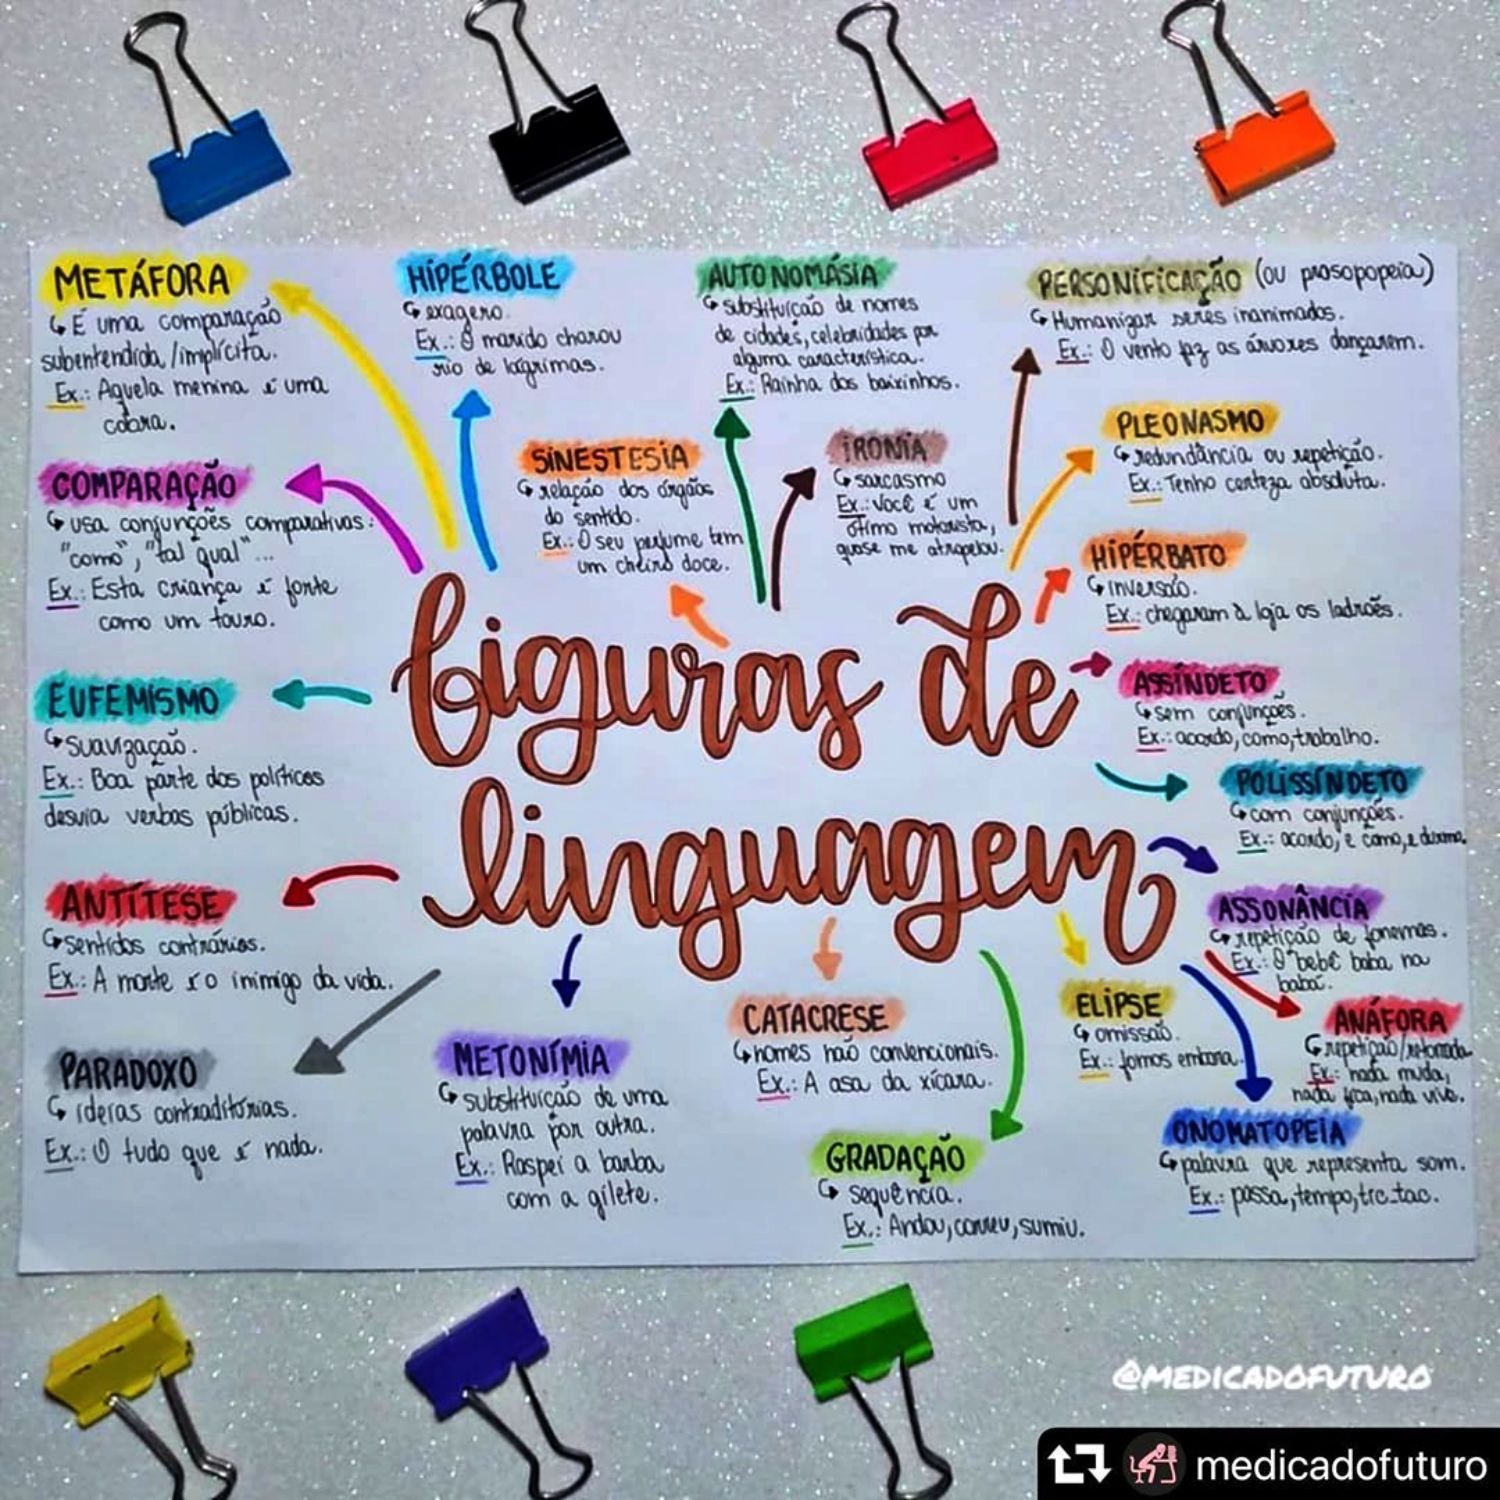 METÁFORA
É uma comparação
subentendida/implícita.
Ex.: Aquela menina é uma
cobra.
HIPÉRBOLE
exagero.
Ex.: O marido chorou
rio de lágrimas.
AUTONOMÁSIA
substituição de nomes
de cidades, celebridades por
alguma característica.
Ex.: Rainha dos baixinhos.
PERSONIFICAÇÃO (ou prosopopeia)
Humanizar seres inanimados.
Ex.: O vento fez as árvores dançarem.
COMPARAÇÃO
usa conjunções comparativas:
"como", "tal qual"...
Ex.: Esta criança é forte
como um touro.
SINESTESIA
relação dos órgãos
do sentido.
Ex.: O seu perfume tem
um cheiro doce.
IRONIA
sarcasmo
Ex.: Você é um
ótimo motorista,
quase me atropelou.
PLEONASMO
redundância ou repetição.
Ex.: Tenho certeza absoluta.
HIPÉRBATO
inversão.
Ex.: chegaram à loja os ladrões.
figuras de
linguagem
EUFEMISMO
suavização.
Ex.: Boa parte dos políticos
desvia verbas públicas.
ASSÍNDETO
sem conjunções.
Ex.: acordo, como, trabalho.
POLISSÍNDETO
com conjunções.
Ex.: acordo, e como, e durmo.
ANTÍTESE
sentidos contrários.
Ex.: A morte é o inimigo da vida.
ASSONÂNCIA
repetição de fonemas.
Ex.: O bebê baba na
babá.
PARADOXO
ideias contraditórias.
Ex.: O tudo que é nada.
METONÍMIA
substituição de uma
palavra por outra.
Ex.: Raspei a barba
com a gilete.
CATACRESE
nomes não convencionais.
Ex.: A asa da xícara.
ELIPSE
omissão.
Ex.: fomos embora.
ANÁFORA
repetição/retomada
Ex.: nada muda,
nada fica, nada vive.
GRADAÇÃO
sequência.
Ex.: Andou, correu, sumiu.
ONOMATOPEIA
palavra que representa som.
Ex.: passa, tempo, tic-tac.
@MEDICADOFUTURO
medicadofuturo